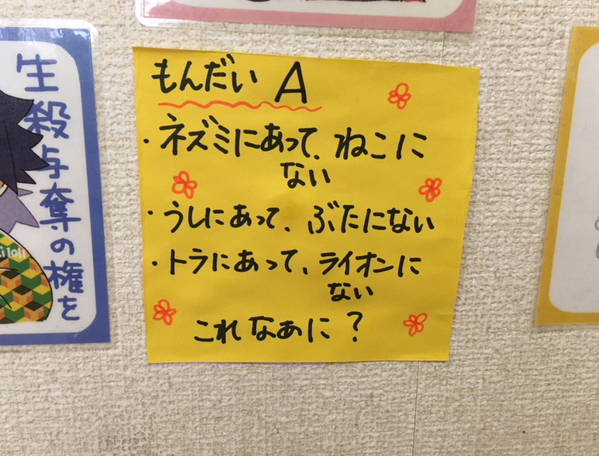 もんだい A
・ネズミにあって、ねこに
ない
・うしにあって、ぶたにない
・トラにあって、ライオンに
ない
これなあに？
生殺与奪の権を